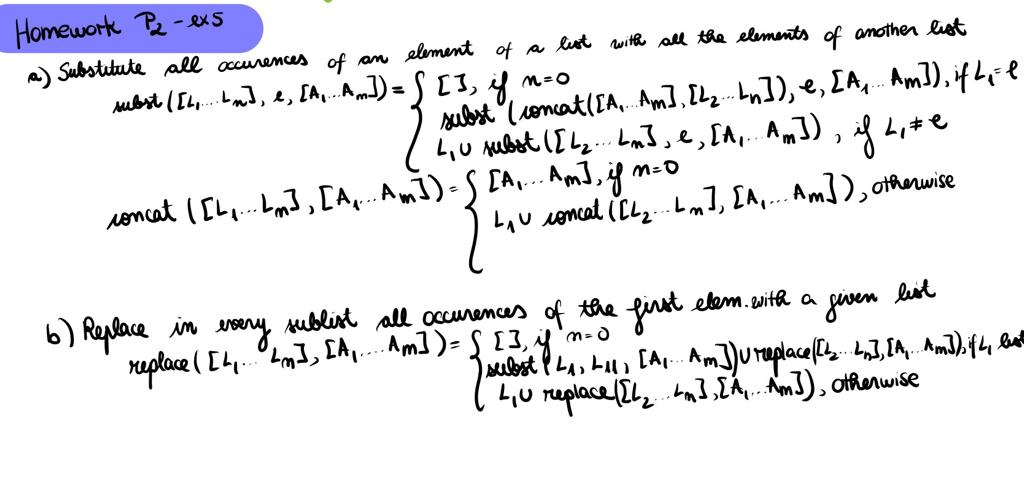 Homework P2 - ex5
a) Substitute all occurences of an element of a list with all the elements of another list
subst([L1...Ln], e, [A1...Am]) = { [], if n=0
subst(concat([A1...Am],[L2...Ln]), e, [A1...Am]), if L1=e
L1 ∪ subst([L2...Ln], e, [A1...Am]), if L1≠e
concat([L1...Ln], [A1...Am]) = { [A1...Am], if n=0
L1 ∪ concat([L2...Ln], [A1...Am]), otherwise
b) Replace in every sublist all occurences of the first elem. with a given list
replace([L1...Ln], [A1...Am]) = { [], if n=0
subst(L1, L11, [A1...Am]) ∪ replace([L2...Ln],[A1...Am]), if L1 list
L1 ∪ replace([L2...Ln],[A1...Am]), otherwise